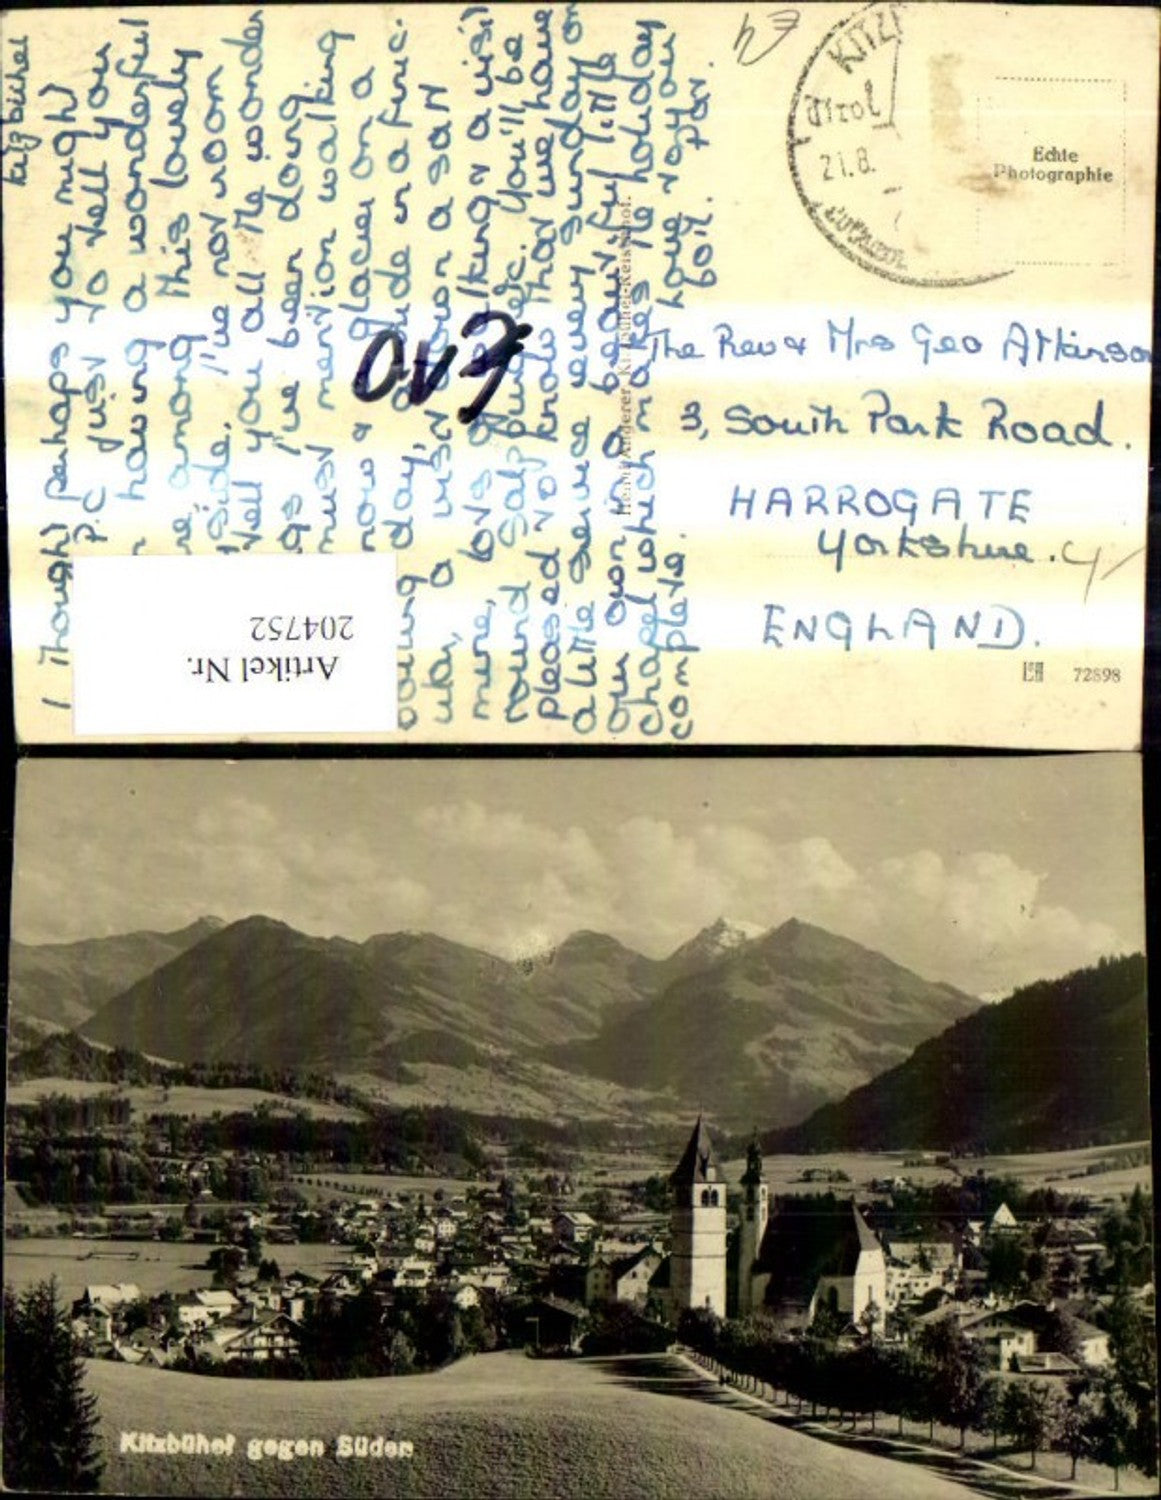 Kitzbühel
I thought perhaps you might
P.C just to tell you
having a wonderful
among this lovely
side, I've not room
tell you all the wonder
I've been doing
must mention walking
now & glacier on a
day, in a finic.
ular, a visit down a salt
mine, lots of walking & a visit
round Salzburg etc. You'll be
pleased to know that we have
a little service every Sunday on
our own in a beautiful little
chapel which makes the holiday
complete. love to you
both. Pat.
KITZ
Tirol
21.8.
Echte
Photographie
The Rev & Mrs Geo Atkinson
3, South Park Road.
HARROGATE
Yorkshire.
ENGLAND.
72898
Artikel Nr.
204752
Kitzbühel gegen Süden